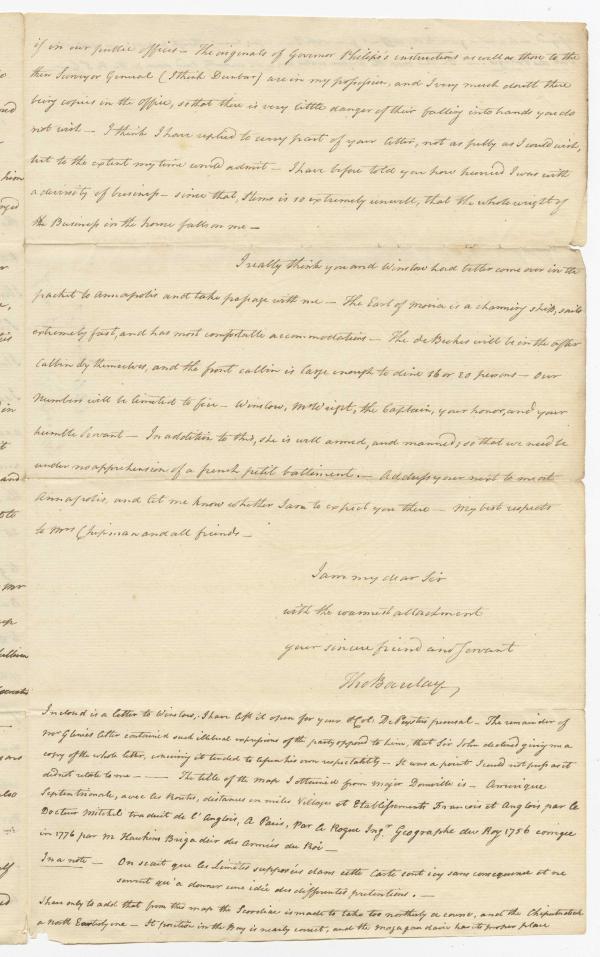 if in our public offices – The originals of Governor Philips's instructions as well as those to the
then Surveyor General (I think Dunbar) are in my possession, and I very much doubt there
being copies in the office, so that there is very little danger of their falling into hands you do
not wish – I think I have replied to every part of your letter, not as fully as I could wish,
but to the extent my time would admit – I have before told you how hurried I was with
a diversity of business – since that, Stems is so extremely unwell, that the whole weight of
the Business in the house falls on me –
I really think you and Winslow had better come over in the
packet to Annapolis and take passage with me – The Earl of Moira is a charming ship, sails
extremely fast, and has most comfortable accommodations – The will be in the after
Cabbin by themselves, and the front cabbin is large enough to dine 16 or 20 persons – Our
Numbers will be limited to five – Winslow, Mr Wright, the Captain, your honor, and your
humble Servant – In addition to this, she is well armed, and manned, so that we need be
under no apprehension of a french petit battiment. – Address your next to me at
Annapolis, and let me know whether I am to expect you there – My best respects
to Mrs Chipman and all friends –
I am my dear Sir
with the warmest attachment
your sincere friend and Servant
Tho Barclay
Inclosed is a letter to Winslow, I have left it open for your & Col. DePeysters perusal – The remainder of
Mr Glenies letter contained such illiberal expressions of the party opposed to him, that Sir John declined giving me a
copy of the whole letter, conceiving it tended to lessen his own respectability – It was a point I could not press as it
did not relate to me – – – The title of the Map I obtained from major is – Amerique
Septentrionale, avec les Routes, distances en miles Villages et Etablissements Francois et Anglois par le
Docteur Mitchel traduit de l'Anglois, A Paris, Par Le Rouge Ingr Geographe du Roy 1756 corrigée
in 1776 par M Hawkins Brigadeir des Armées du Roi –
In a note – On scait que les Limites supposées dans cette Carte sont icy sans consequence et ne
servent qu'a donner une idée des differentes pretentions. –
I have only to add that from this map the Scoodiac is made to take too northerly a course, and the
a North Easterly one – Its position in the Bay is nearly correct, and the Magaguadavic has its proper place